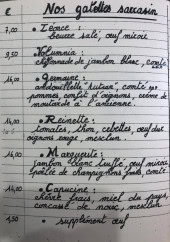 € Nos galettes sarrasin
7,00 • Léonce :
Beurre salé, œuf miroir
9,50 • Volumnia :
chiffonnade de jambon blanc, comté
14,00 • Germaine :
andouillette, comté
pommes, confit d'oignons, crème de
moutarde à l'ancienne.
14,00 • Reinette :
tomates, thon, œuf dur
oignons rouge, mesclun.
14,00 • Marguerite :
jambon blanc, œuf miroir
poêlée de champignons, comté.
14,00 • Capucine :
chèvre frais, miel du pays,
concassé de noix, mesclun.
1,50 • supplément œuf